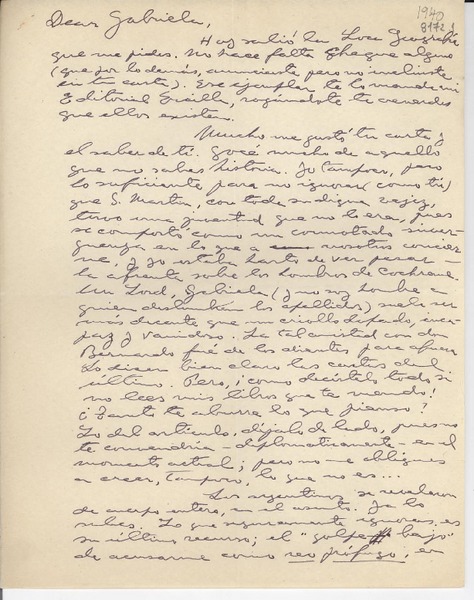 1940
8172!
Dear Gabriela,
Hoy salió la Loca Geografía
que me pides. No hace falta cheque alguno
(que por lo demás, anunciaste pero no incluiste
en tu carta). Ese ejemplar te lo manda mi
Editorial Ercilla, rogándote te acuerdes
que ellos existen.
Mucho me gustó tu carta y
el saber de ti. Gocé mucho de aquello
que no sabes historia. Yo tampoco, pero
lo suficiente para no ignorar (como tú)
que S. Martín, con toda su digna vejez,
tuvo una juventud que no lo era, pues
se comportó como un connotado sinver-
güenza en lo que a nosotros concier-
ne, y yo estaba harto de ver pesar
la afrenta sobre los hombros de Cochrane
Un Lord, Gabriela (y no soy hombre a
quien deslumbren los apellidos) suele ser
más decente que un criollo dopado, incapaz
y vanidoso. La tal amistad con don
Bernardo fué de los dientes para afuera
Lo dicen bien claro las cartas del
último. Pero, ¡como decírtelo todo si
no lees mis libros que te mando!
¿Tanto te aburre lo que pienso?
Lo del artículo, déjalo de lado, pues no
te convendría - diplomáticamente - en el
momento actual; pero no me obligues
a creer, tampoco, lo que no es...
Los argentinos se revelaron
de cuerpo entero, en el asunto. Ya lo
sabes. Lo que seguramente ignoras, es
su último recurso; el "golpe bajo"
de acusarme como reo prófugo, en